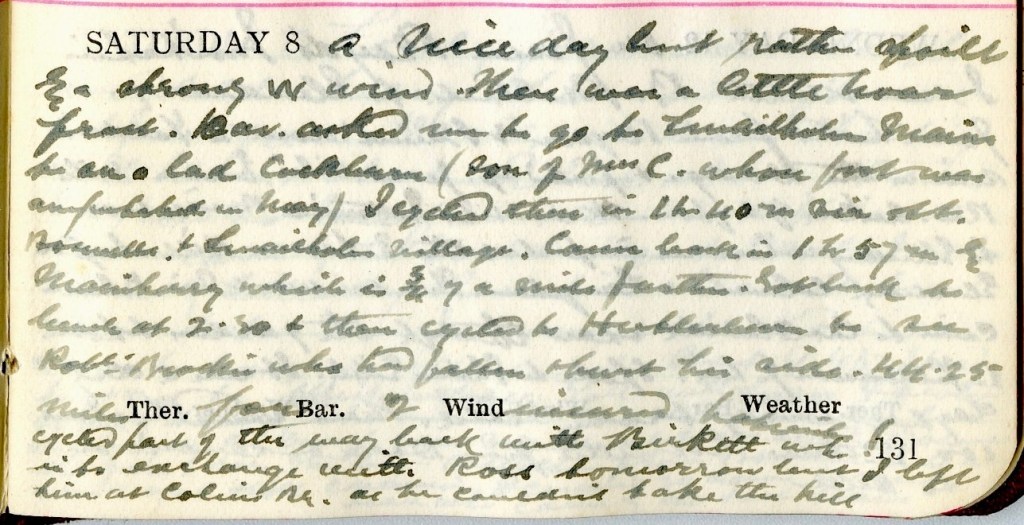 SATURDAY 8 A nice day but rather spoilt
by a strong W wind. There was a little hoar
frost. asked me to go to Smailholm Mains
to a lad Cockburn (son of Mrs C. whose foot was
amputated in May) I cycled there in 1 h 40 m
Boswells & Smailholm village. Came back in 1 h 57 m by
which is 3/4 of a mile further. Got back to
lunch at 2.30 & then cycled to to see
Robt who had fallen & hurt his side. 44.25
miles for 2 insured patients!
Ther. Bar. Wind Weather
cycled part of the way back with Birkett who
is to exchange with Ross tomorrow but I left
131
him at as he couldnt take the hill